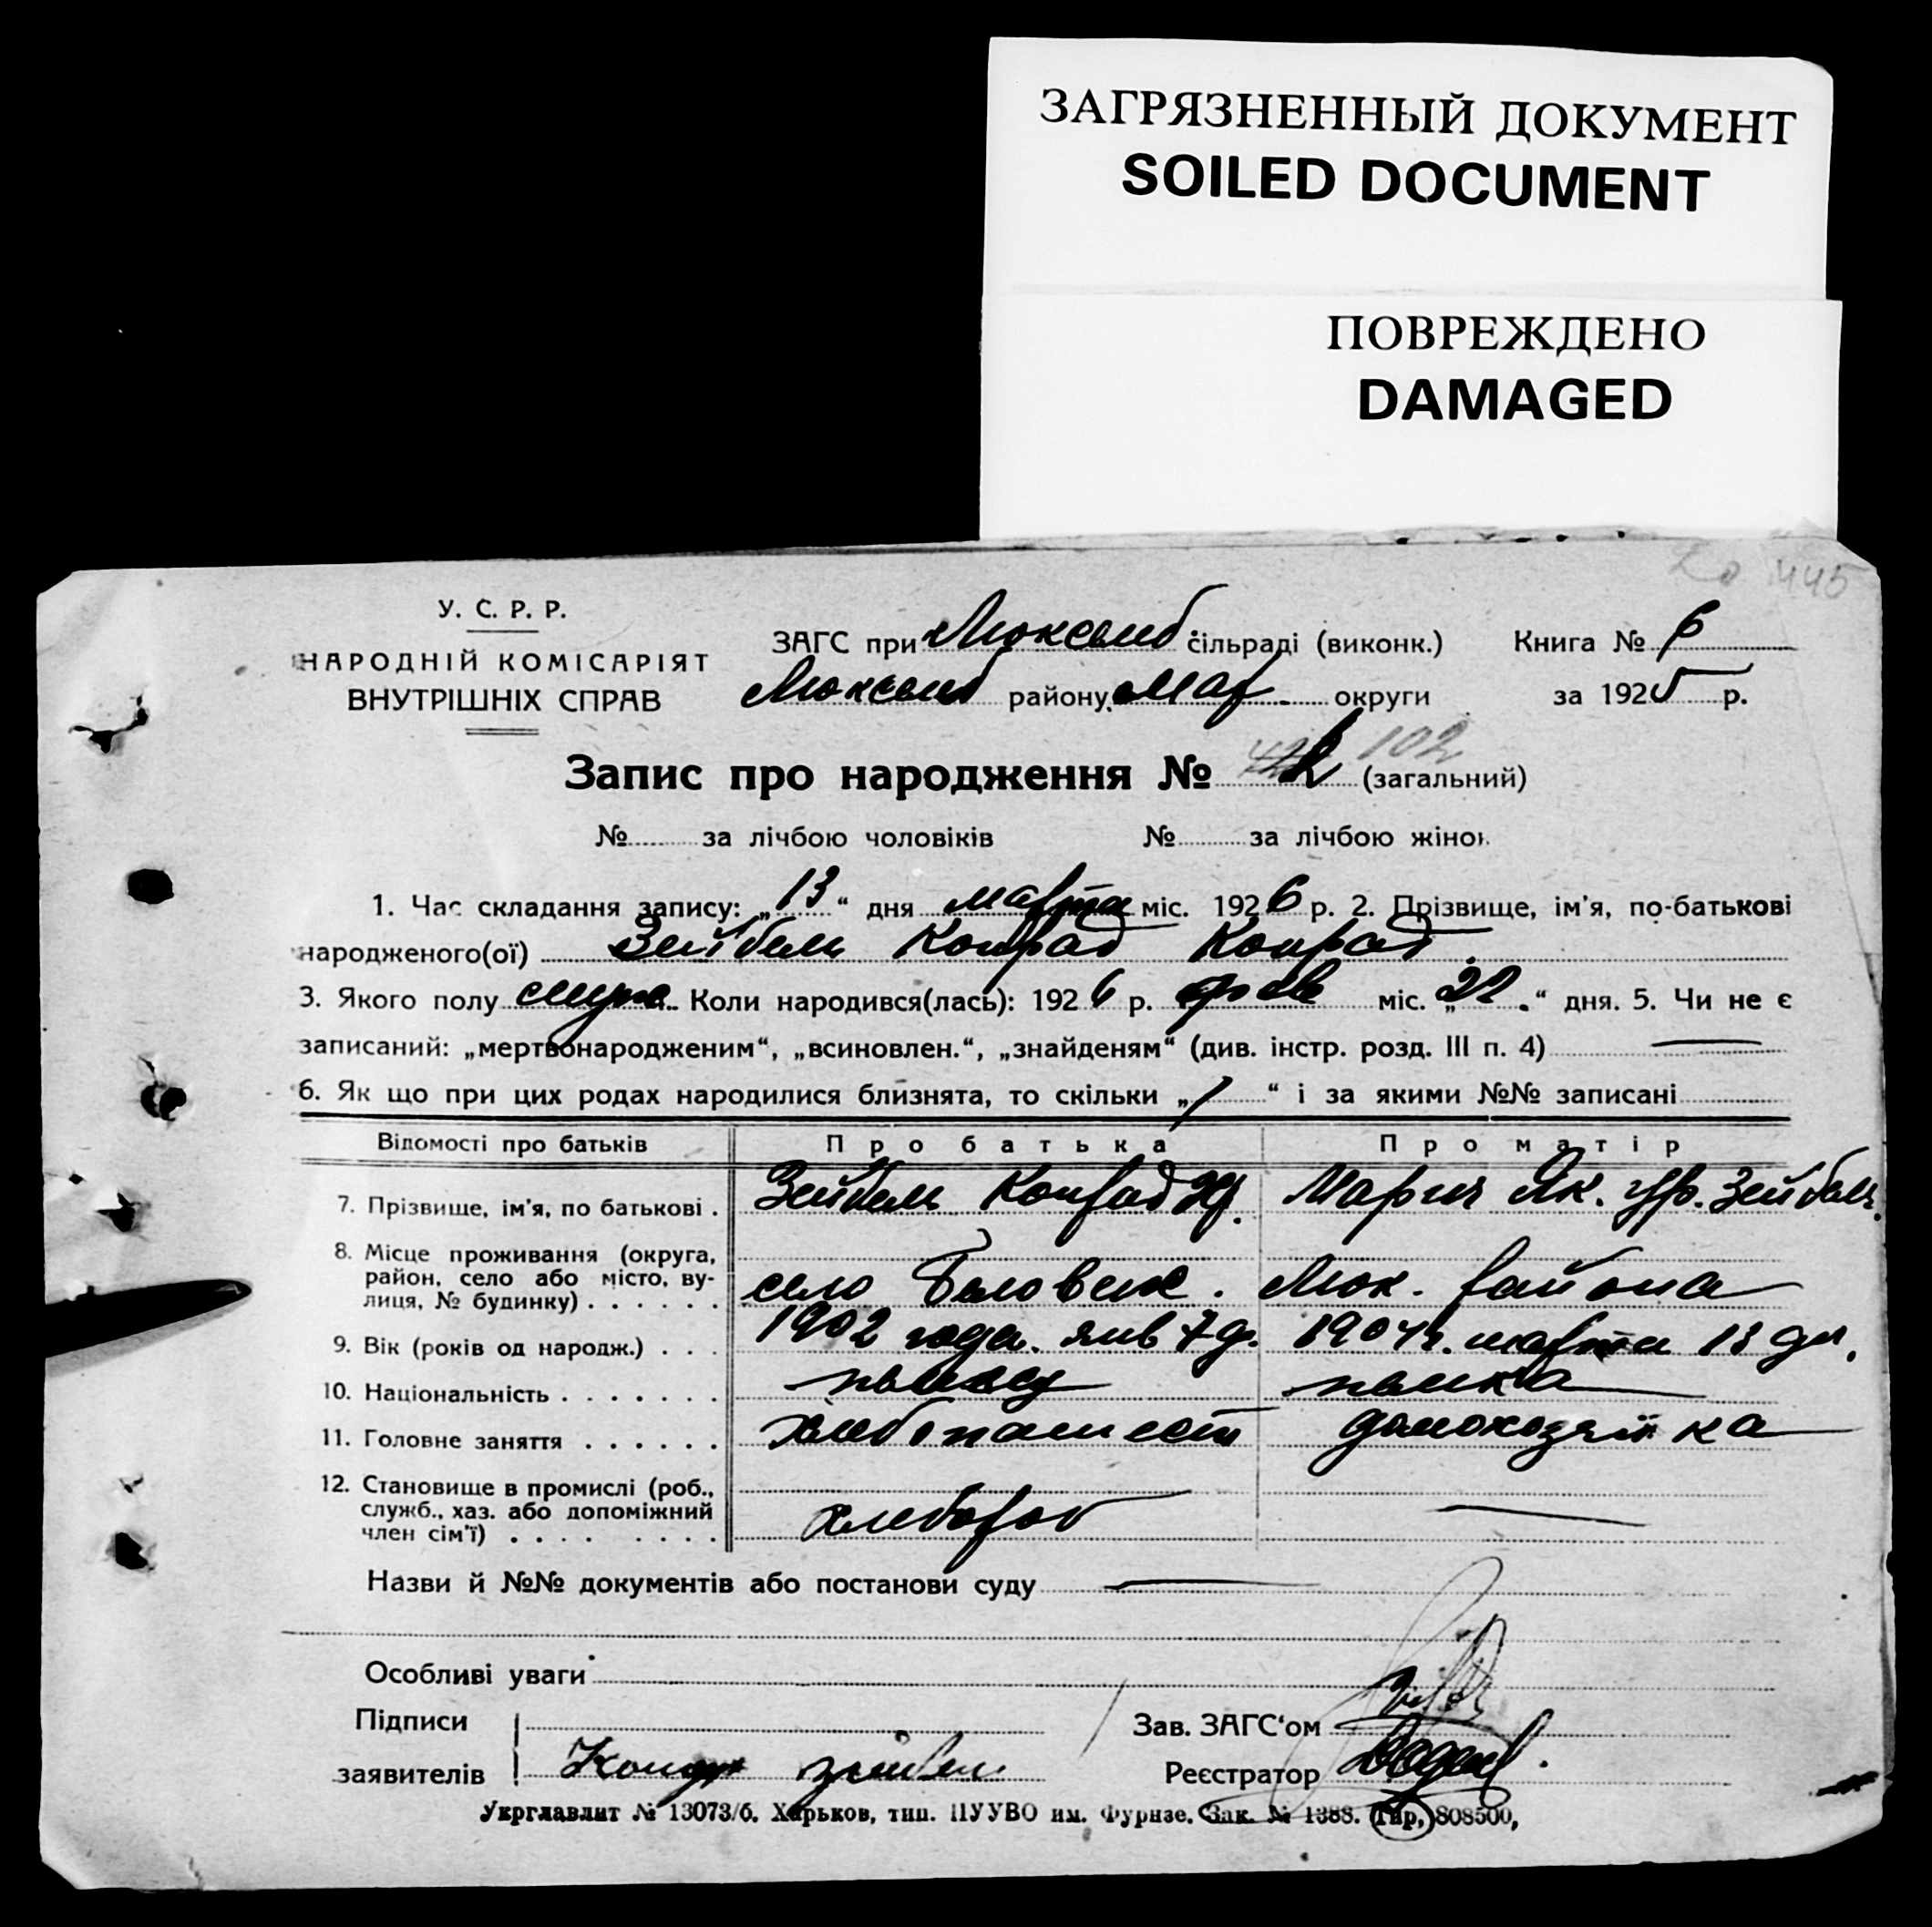 ЗАГРЯЗНЕННЫЙ ДОКУМЕНТ
SOILED DOCUMENT
ПОВРЕЖДЕНО
DAMAGED
445
У. С. Р. Р.
НАРОДНІЙ КОМІСАРІЯТ
ВНУТРІШНІХ СПРАВ
ЗАГС при Люксемб сільраді (виконк.) Книга № 6
Люксемб району Мар. округи за 1925 р.
Запис про народження № 102 (загальний)
№ за лічбою чоловіків № за лічбою жінок
1. Час складання запису: „13“ дня марта міс. 1926 р. 2. Прізвище, ім'я, по-батькові
народженого(ої) Зейбель Конрад Конрад.
3. Якого полу Коли народився(лась): 1926 р. фев міс. „22“ дня. 5. Чи не є
записаний: „мертвонародженим“, „всиновлен.“, „знайденям“ (див. інстр. розд. III п. 4)
6. Як що при цих родах народилися близнята, то скільки „1“ і за якими №№ записані
Відомості про батьків Про батька Про матір
7. Прізвище, ім'я, по батькові . Зейбель Конрад Мария Як. ур. Зейбель.
8. Місце проживання (округа,
район, село або місто, ву-
лиця, № будинку) . . . . . . село Беловеж. Люк. района
9. Вік (років од народж.) . . . 1902 года. янв 7 д. 1904 г. марта 13 дн.
10. Національність . . . . . . . немец немка
11. Головне заняття . . . . . . хлебопашест домохозяйка
12. Становище в промислі (роб.,
служб., хаз. або допоміжний
член сім'ї) . . . . . . . . хлебороб
Назви й №№ документів або постанови суду
Особливі уваги
Підписи
Зав. ЗАГС‘ом
заявителів Реєстратор
Укрглавлит № 13073/б. Харьков, тип. ПУУВО им. Фурнзе. Зак. № 1388. Тир. 808500,